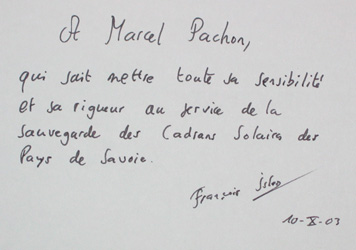 A Marcel Pachon,
qui sait mettre toute sa sensibilité
et sa rigueur au service de la
sauvegarde des Cadrans Solaires des
Pays de Savoie.
François
10-X-03